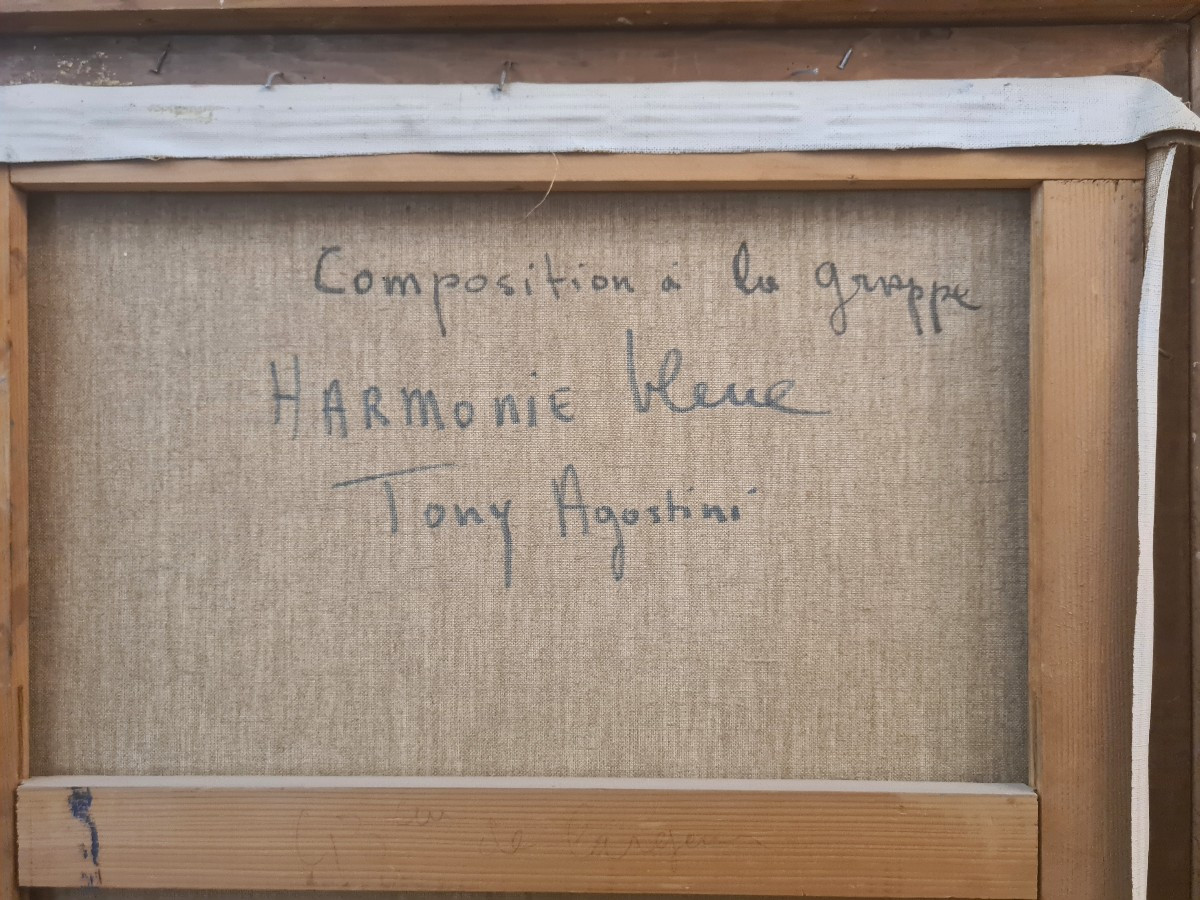 Composition à la grappe
HARMONiE bleue
Tony Agostini
de